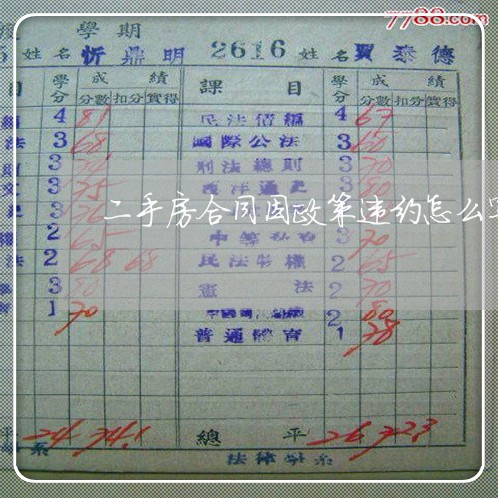 7788.com
學期
姓名 忻鼎明 2616 姓名 賈泰德
目 學分 成績 課目 學分 成績
分數 扣分 實得 分數 扣分 實得
4 81 民法債編 4 67
法 3 68 國際公法 3 60
3 刑法總則 3 70
3 75 西洋通史 3 80
二手房合同因政策违约怎么
2 65 3 70
法 2 68 68 民法物權 2 65
3 80 憲法 2 70
1 70 2 80
普通體育 1 78
平 24 74.1 總平 26 72.3
系 法律學系